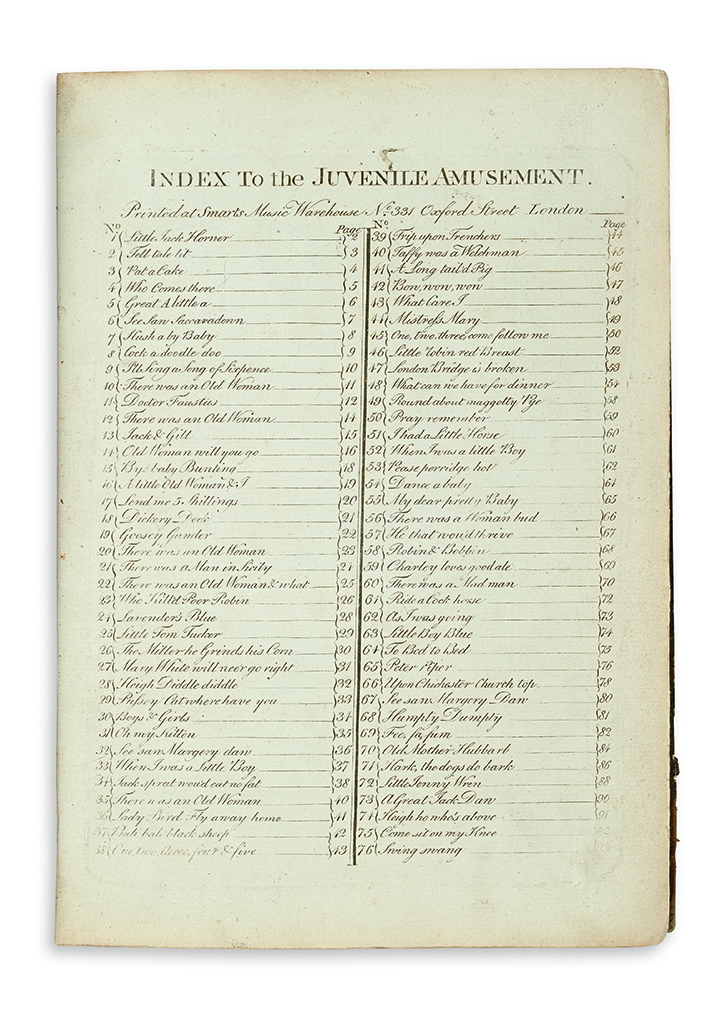 INDEX To the JUVENILE AMUSEMENT.
Printed at Smarts Music Warehouse No. 331 Oxford Street London
No. Page
1 Little Jack Horner 2
2 Tell tale tit 3
3 Pat a Cake 4
4 Who Comes there 5
5 Great A little a 6
6 See Saw Saccaradown 7
7 Hush a by Baby 8
8 Cock a doodle doo 9
9 I'll Sing a Song of Sixpence 10
10 There was an Old Woman 11
11 Doctor Faustus 12
12 There was an Old Woman 14
13 Jack & Gill 15
14 Old Woman will you go 16
15 Bye baby Bunting 18
16 A little Old Woman & I 19
17 Lend me 5 Shillings 20
18 Dickery Dock 21
19 Goosey Gander 22
20 There was an Old Woman 23
21 There was a Man in Sicily 24
22 There was an Old Woman & what 25
23 Who Kill'd Poor Robin 26
24 Lavender's Blue 28
25 Little Tom Tucker 29
26 The Miller he Grinds his Corn 30
27 Mary White will neer go right 31
28 Heigh Diddle diddle 32
29 Pussey Cat where have you 33
30 Boys & Girls 34
31 Oh my Kitten 35
32 See saw Margery daw 36
33 When I was a Little Boy 37
34 Jack sprat wou'd eat no fat 38
35 There was an Old Woman 40
36 Lady Bird Fly away home 41
37 Bah bah black sheep 42
38 One, two, three, four & five 43
No. Page
39 Trip upon Trenchers 44
40 Taffy was a Welchman 45
41 A Long tail'd Pig 46
42 Bow, wow, wow 47
43 What Care I 48
44 Mistress Mary 49
45 One, two, three, come follow me 50
46 Little Robin red Breast 52
47 London Bridge is broken 53
48 What can we have for dinner 54
49 Round about maggotty Pye 58
50 Pray remember 59
51 I had a Little Horse 60
52 When I was a little Boy 61
53 Pease porridge hot 62
54 Dance a baby 64
55 My dear pretty Baby 65
56 There was a Woman bud 66
57 He that wou'd thrive 67
58 Robin & Bobbin 68
59 Charley loves good ale 69
60 There was a Mad man 70
61 Ride a Cock horse 72
62 As I was going 73
63 Little Boy Blue 74
64 To Bed to Bed 75
65 Peter Piper 76
66 Upon Chichester Church top 78
67 See saw Margery Daw 80
68 Humpty Dumpty 81
69 Fee, fa, fum 82
70 Old Mother Hubbard 84
71 Hark, the dogs do bark 86
72 Little Jenny Wren 88
73 A Great Jack Daw 90
74 Heigh ho who's above 91
75 Come sit on my Knee
76 Swing swang